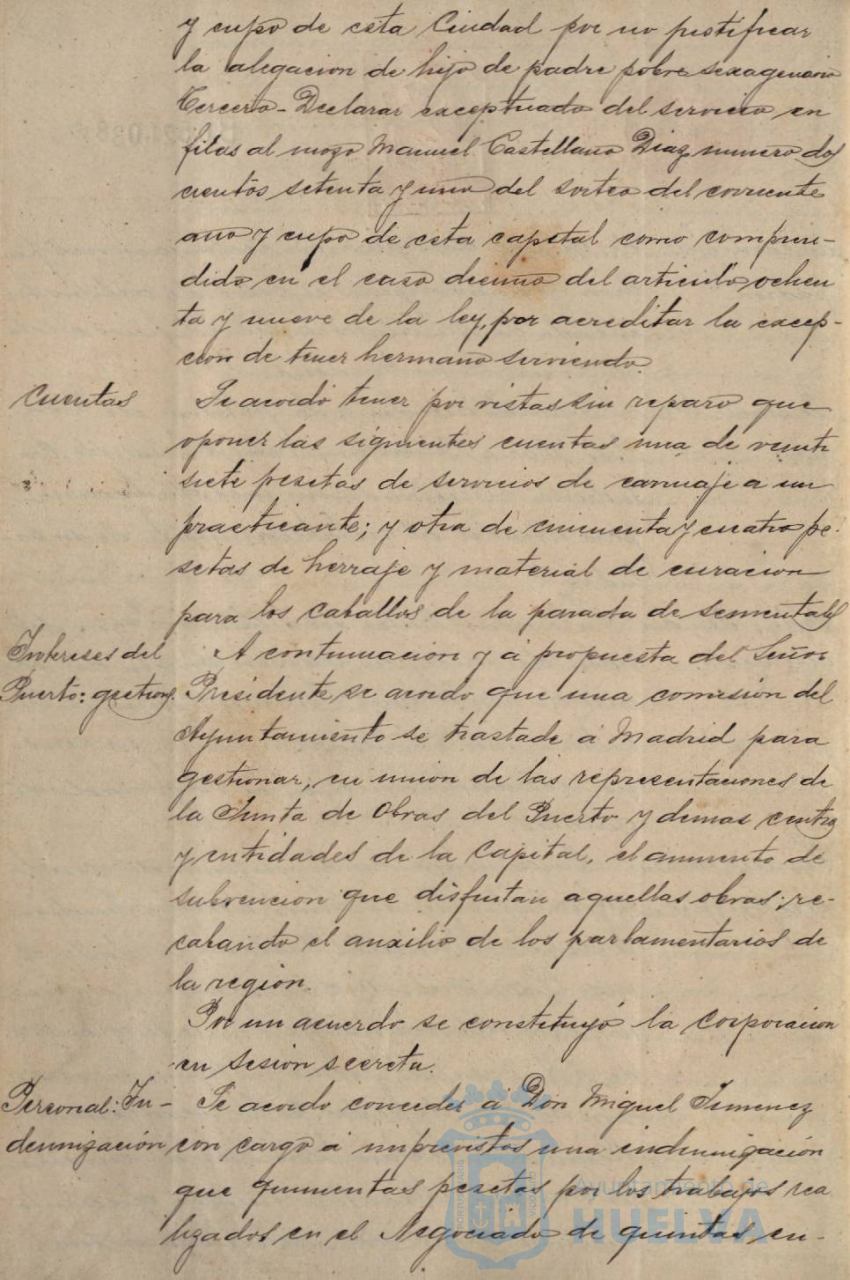 y cupo de esta Ciudad por no justificar
la alegacion de hijo de padre pobre sexagenario
Tercero - Declarar exceptuado del servicio en
filas al mozo Manuel Castellano Diaz numero dos
cientos setenta y uno del sorteo del corriente
año y cupo de esta capital como compren-
dido en el caso decimo del articulo ochen
ta y nueve de la ley, por acreditar la excep-
cion de tener hermano sirviendo.
Cuentas
Se acordó tener por vistas sin reparo que
oponer las siguientes cuentas una de veinti
siete pesetas de servicios de carruaje a un
practicante; y otra de cincuenta y cuatro pe-
setas de herraje y material de curacion
para los caballos de la parada de sementales
Intereses del
Puerto: gestions.
A continuación y á propuesta del Señor
Presidente se acordo que una comisión del
Ayuntamiento se traslade á Madrid para
gestionar, en union de las representaciones de
la Junta de Obras del Puerto y demas centros
y entidades de la Capital, el aumento de
subvencion que disfrutan aquellas obras; re-
cabando el auxilio de los parlamentarios de
la región.
Por un acuerdo se constituyó la Corporacion
en sesión secreta.
Personal: In-
demnización
Se acordo conceder á Don Miguel Jimenez
con cargo á imprevistos una indemnización
que quinientas pesetas por los trabajos rea
lizados en el Negociado de quintas en-
Ayuntamiento de
HUELVA